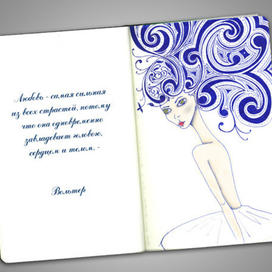 Любовь - самая сильная
из всех страстей, потому
что она одновременно
завладевает головою,
сердцем и телом. -
Вольтер